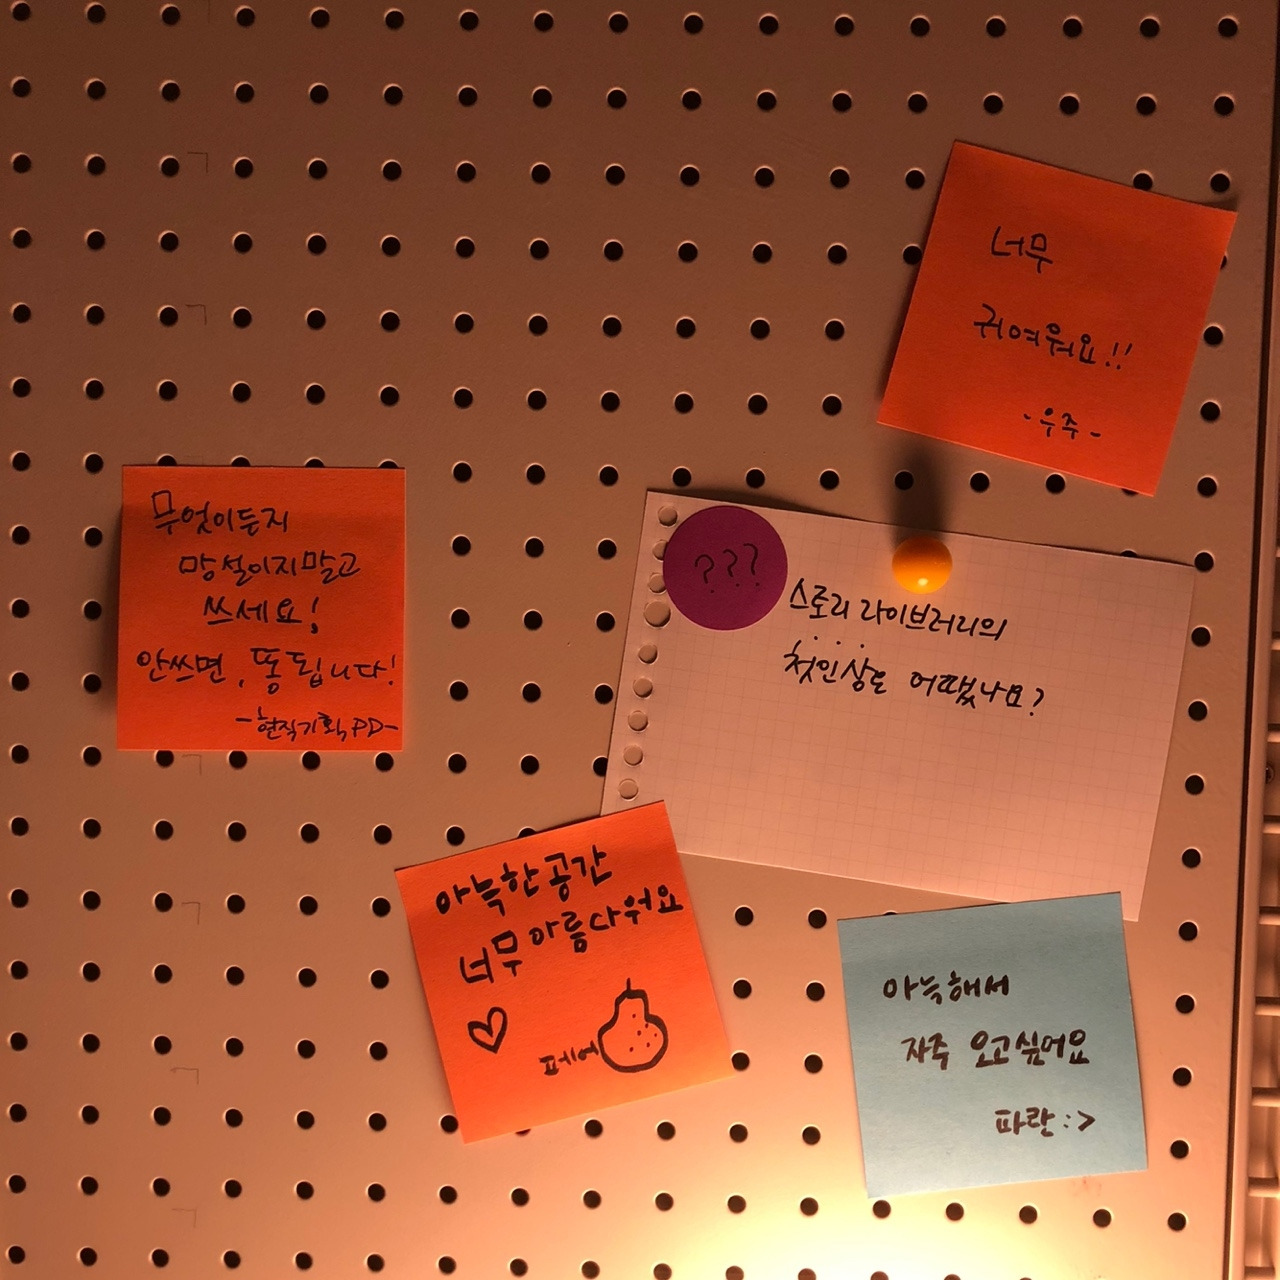 너무
귀여워요!!
-우주-
무엇이든지
망설이지말고
쓰세요!
안쓰면, 똥됩니다!
-현직기획PD-
???
스토리 라이브러리의
첫인상은 어땠나요?
아늑한 공간
너무 아름다워요
페어
아늑해서
자주 오고싶어요
파란:>